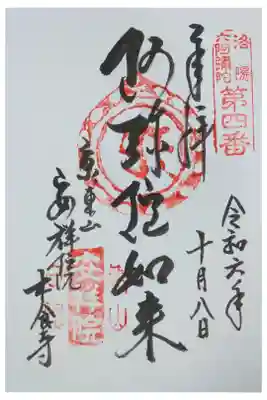 洛陽
六阿彌陀
第四番
奉拝
令和六年
十月八日
阿弥陀如来
東山
安祥院
木食寺